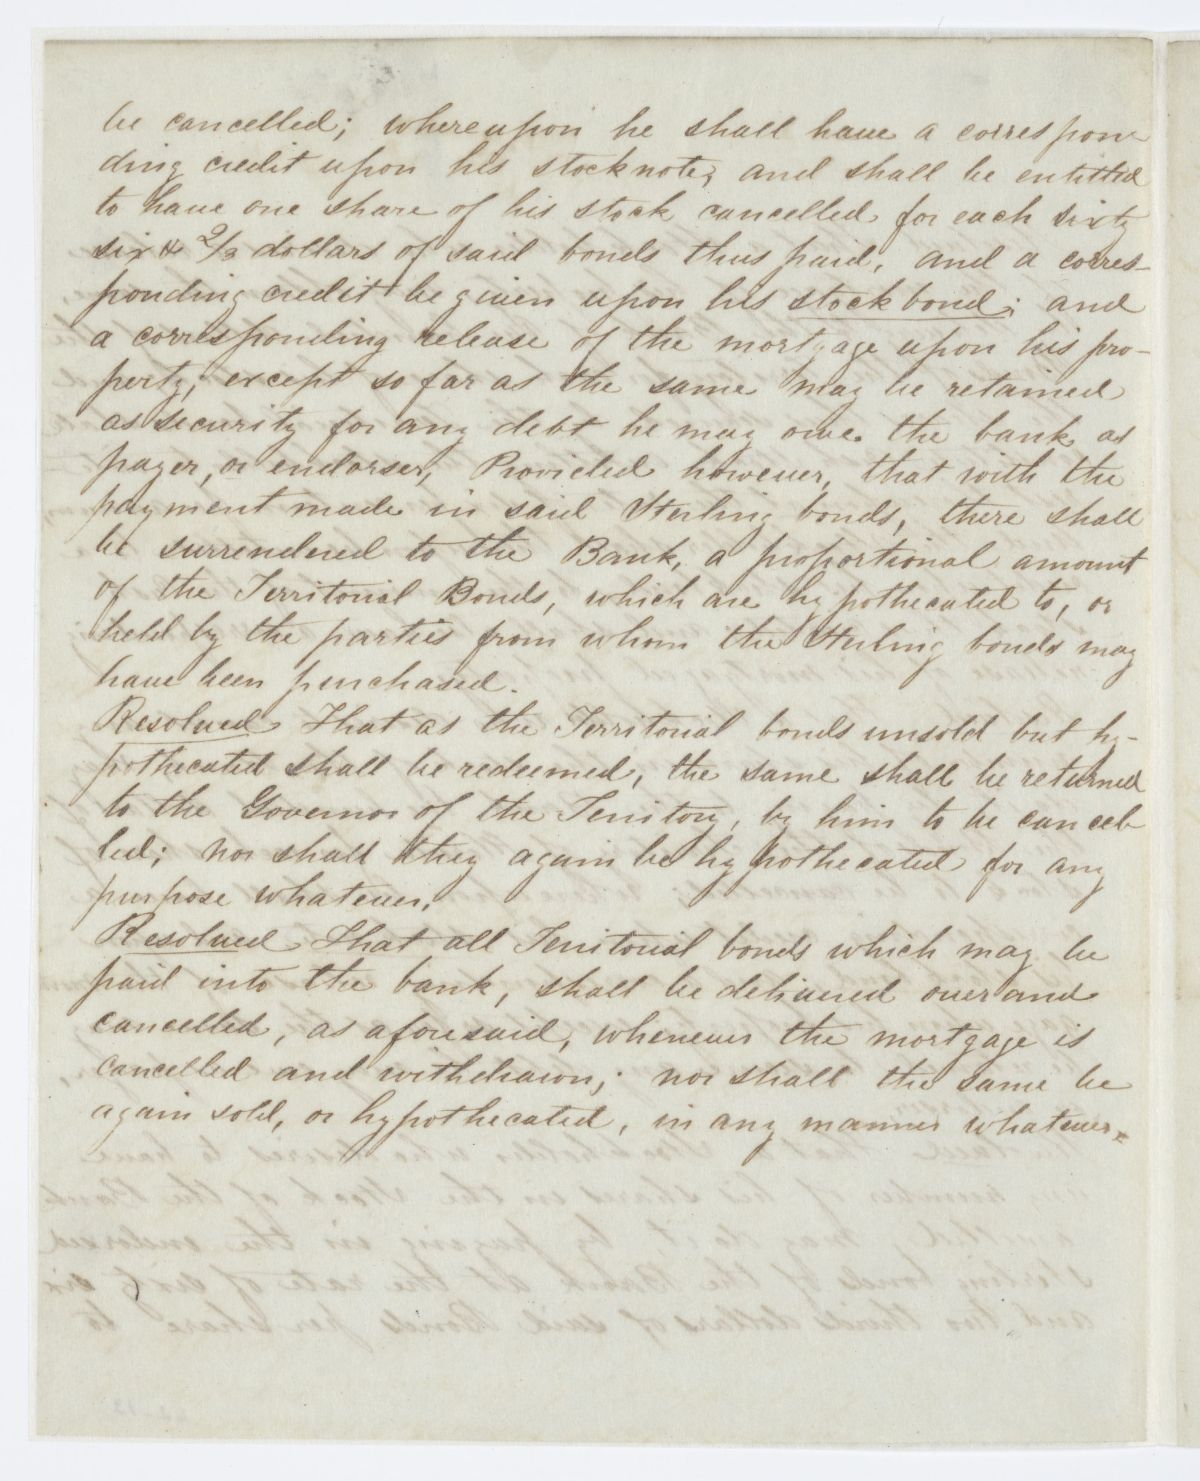 be cancelled; whereupon he shall have a correspon
ding credit upon his stocknote, and shall be entitled
to have one share of his stock cancelled for each sixty
six & 2/3 dollars of said bonds thus paid, and a corres-
ponding credit be given upon his stock bond; and
a corresponding release of the mortgage upon his pro-
perty; except so far as the same may be retained
as security for any debt he may owe the bank as
payer, or endorser; Provided however, that with the
payment made in said Sterling bonds, there shall
be surrendered to the Bank, a proportional amount
of the Territorial Bonds, which are hypothecated to, or
held by the parties from whom the Sterling bonds may
have been purchased.
Resolved That as the Territorial bonds unsold but hy-
pothecated shall be redeemed, the same shall be returned
to the Governor of the Territory, by him to be cancel-
led; nor shall they again be hypothecated for any
purpose whatever.
Resolved That all Territorial bonds which may be
paid into the bank, shall be delivered over and
cancelled, as aforesaid, whenever the mortgage is
cancelled and withdrawn; nor shall the same be
again sold, or hypothecated, in any manner whatever.